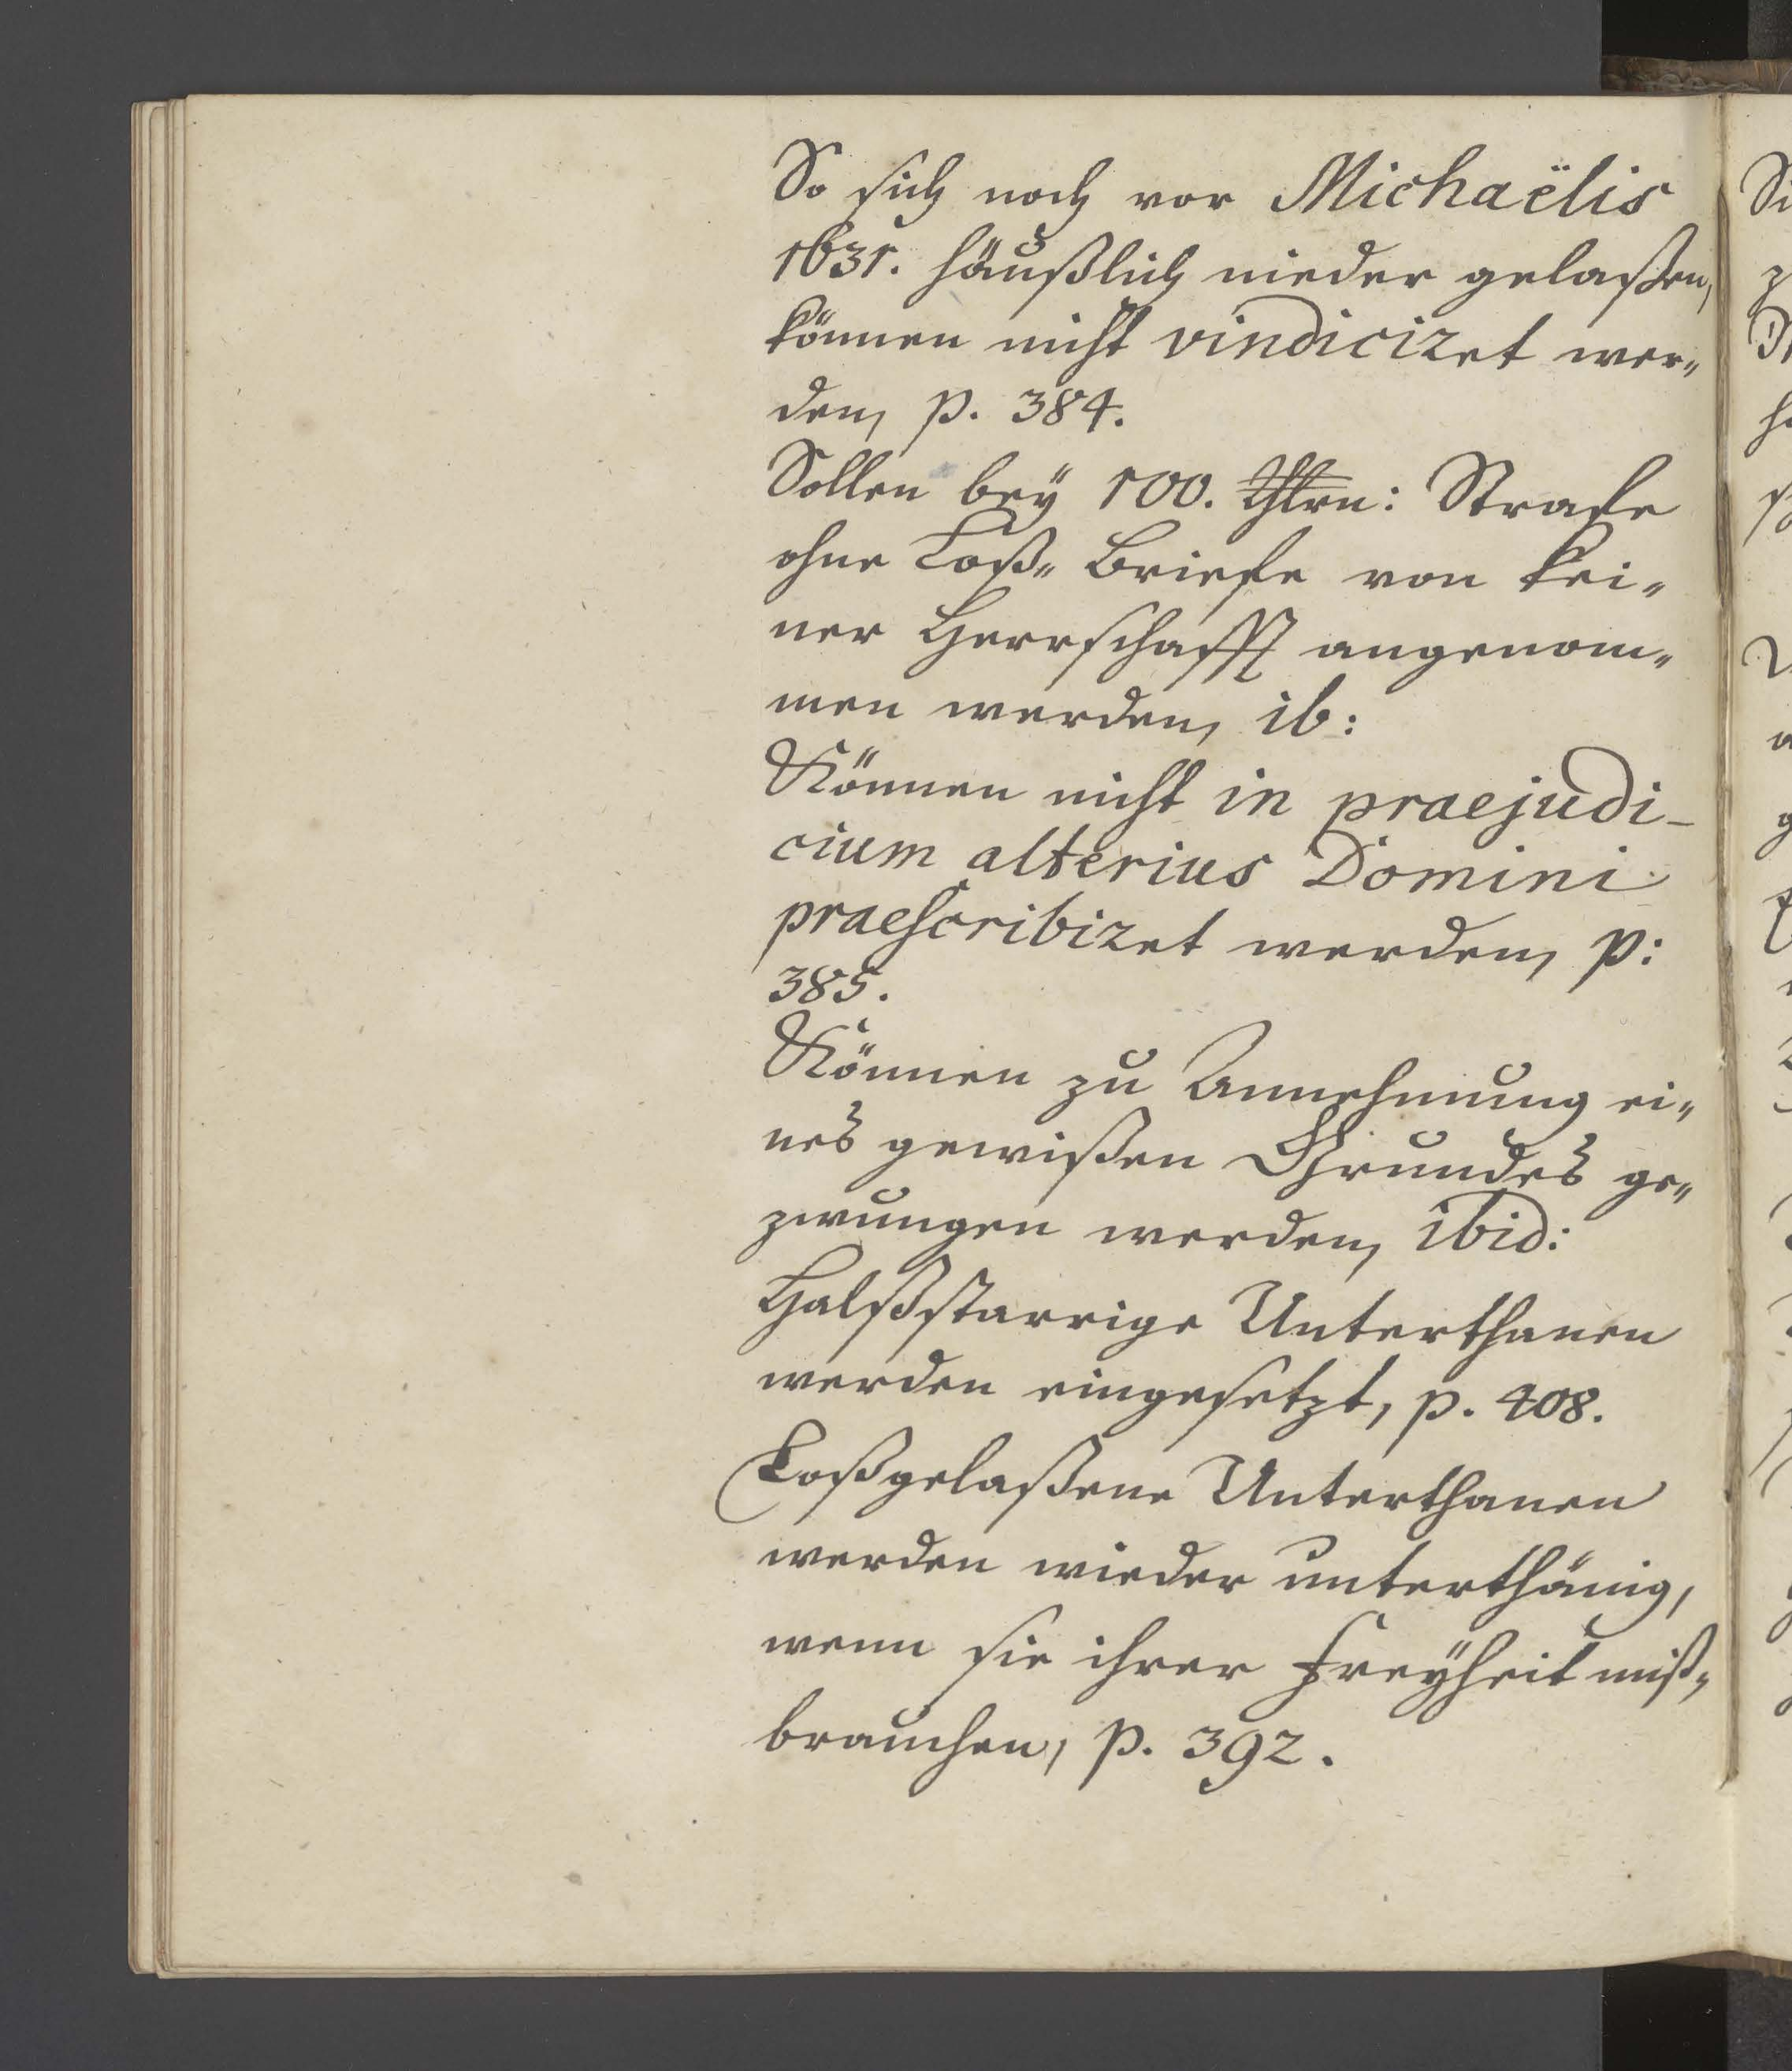 So sich noch vor Michaëlis
1631. häußlich nieder gelaßen,
können nicht vindiciret wer„
den, p. 384.
Sollen beÿ 100. Thlrn: Strafe
ohne Loß„ Briefe von kei„
ner Herrschafft angenom„
men werden, ib:
Können nicht in praejudi-
cium alterius Domini
praescribiret werden, p:
385.
Können zu Annehmung ei„
nes gewißen Grundes ge„
zwungen werden, ibid:
Halßstarrige Unterthanen
werden eingesetzt, p. 408.
Loßgelaßene Unterthanen
werden wieder unterthänig,
wenn sie ihrer Freÿheit miß„
brauchen, p. 392.